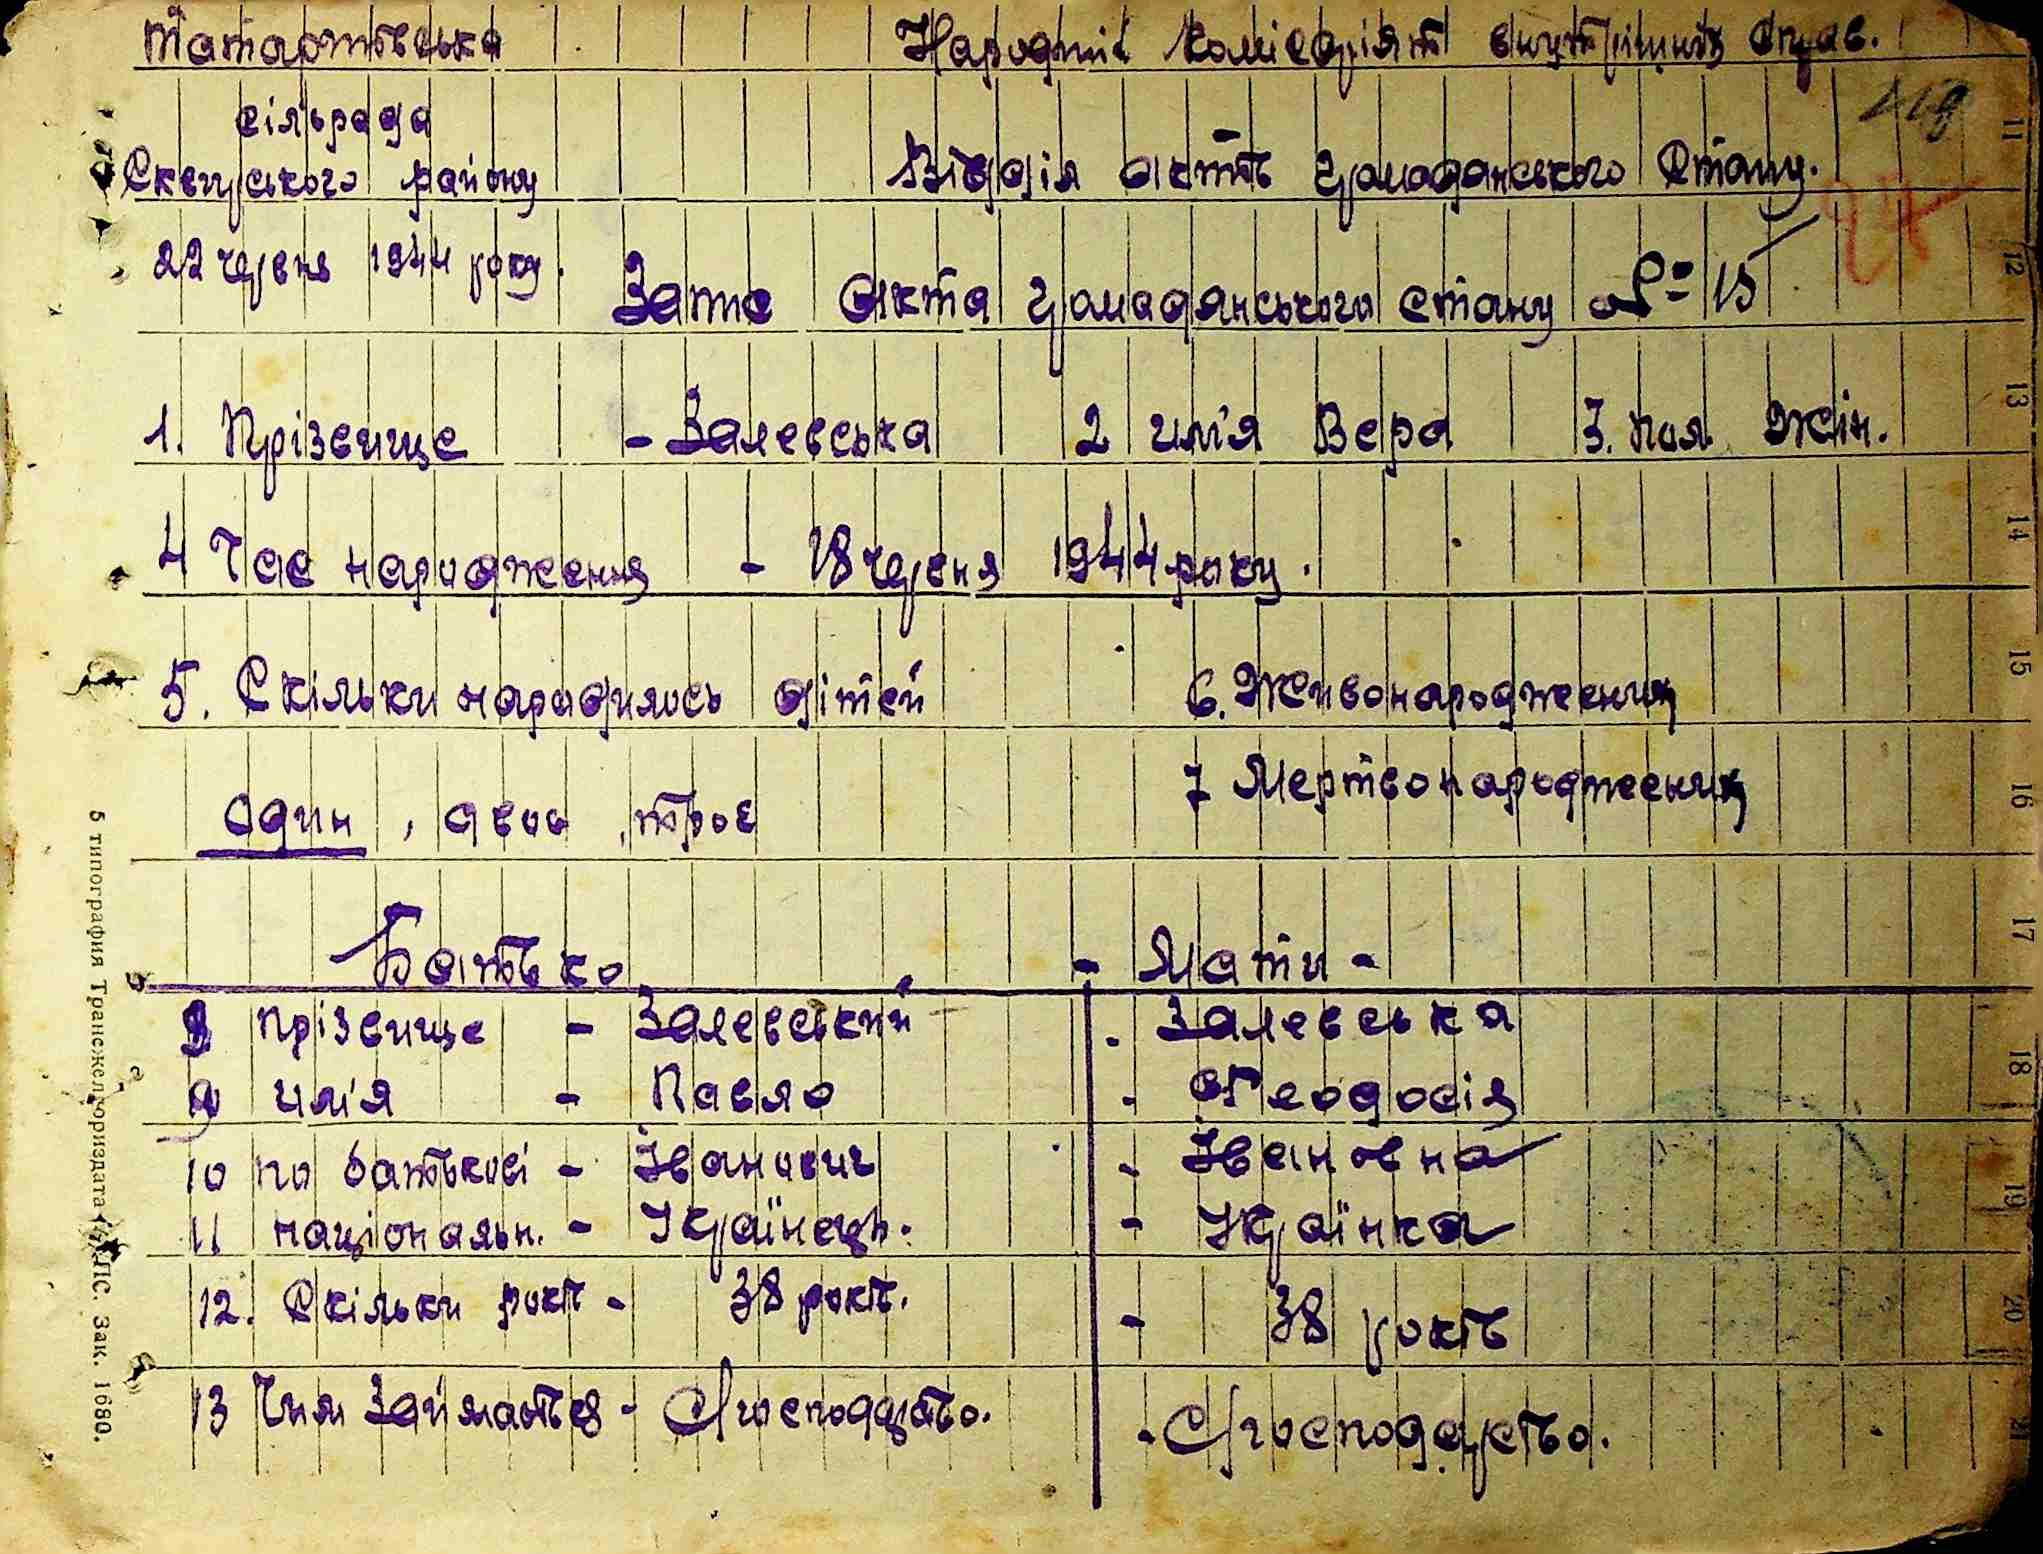 Татаротівська Народній Комісаріят внутрішніх справ.
сільрада
Сквирського району Відділ актів громадянського стану.
22 червня 1944 року.
Запис акта громадянського стану № 15
1. Прізвище - Залевська 2 имія Вера 3. пол жін.
4 Час народження - 18 червня 1944 року.
5. Скільки народилось дітей 6. Живонароджених
7 Мертвонароджених
один, двоє, троє
Батько - Мати -
8 прізвище - Залевський - Залевська
9 имія - Павло - Феодосія
10 по батькові - Іванович - Івановна
11 національн. - Українець. - Українка
12. Скільки років - 38 років. - 38 років
13 Чим займається - С/господарство. - С/господарство.
5 типография Трансжелдориздата НКПС. Зак. 1680.
11
12
13
14
15
16
17
18
19
20
21